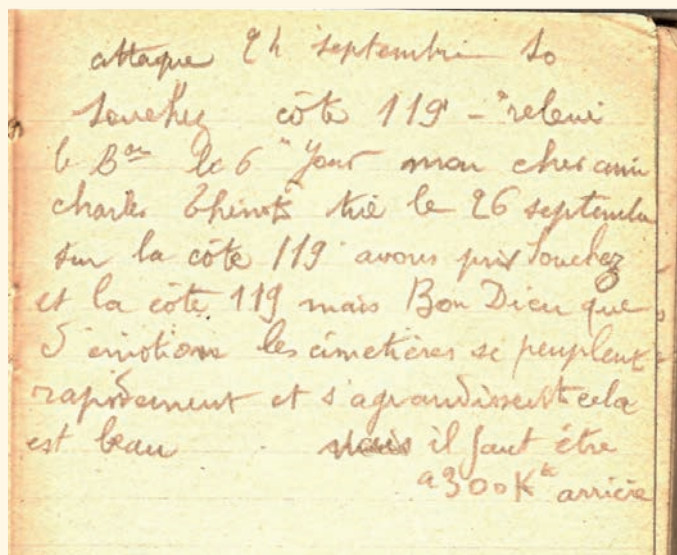 attaque 24 septembre
Souchez côte 119 - "relevé
le Bon le 6" Jour mon cher ami
charles tué le 26 septembre
sur la côte 119 avons pris Souchez
et la côte 119 mais Bon Dieu que
d'émotions les cimetières se peuplent
rapidement et s'agrandissent cela
est beau mais il faut être
a 300 K arrière